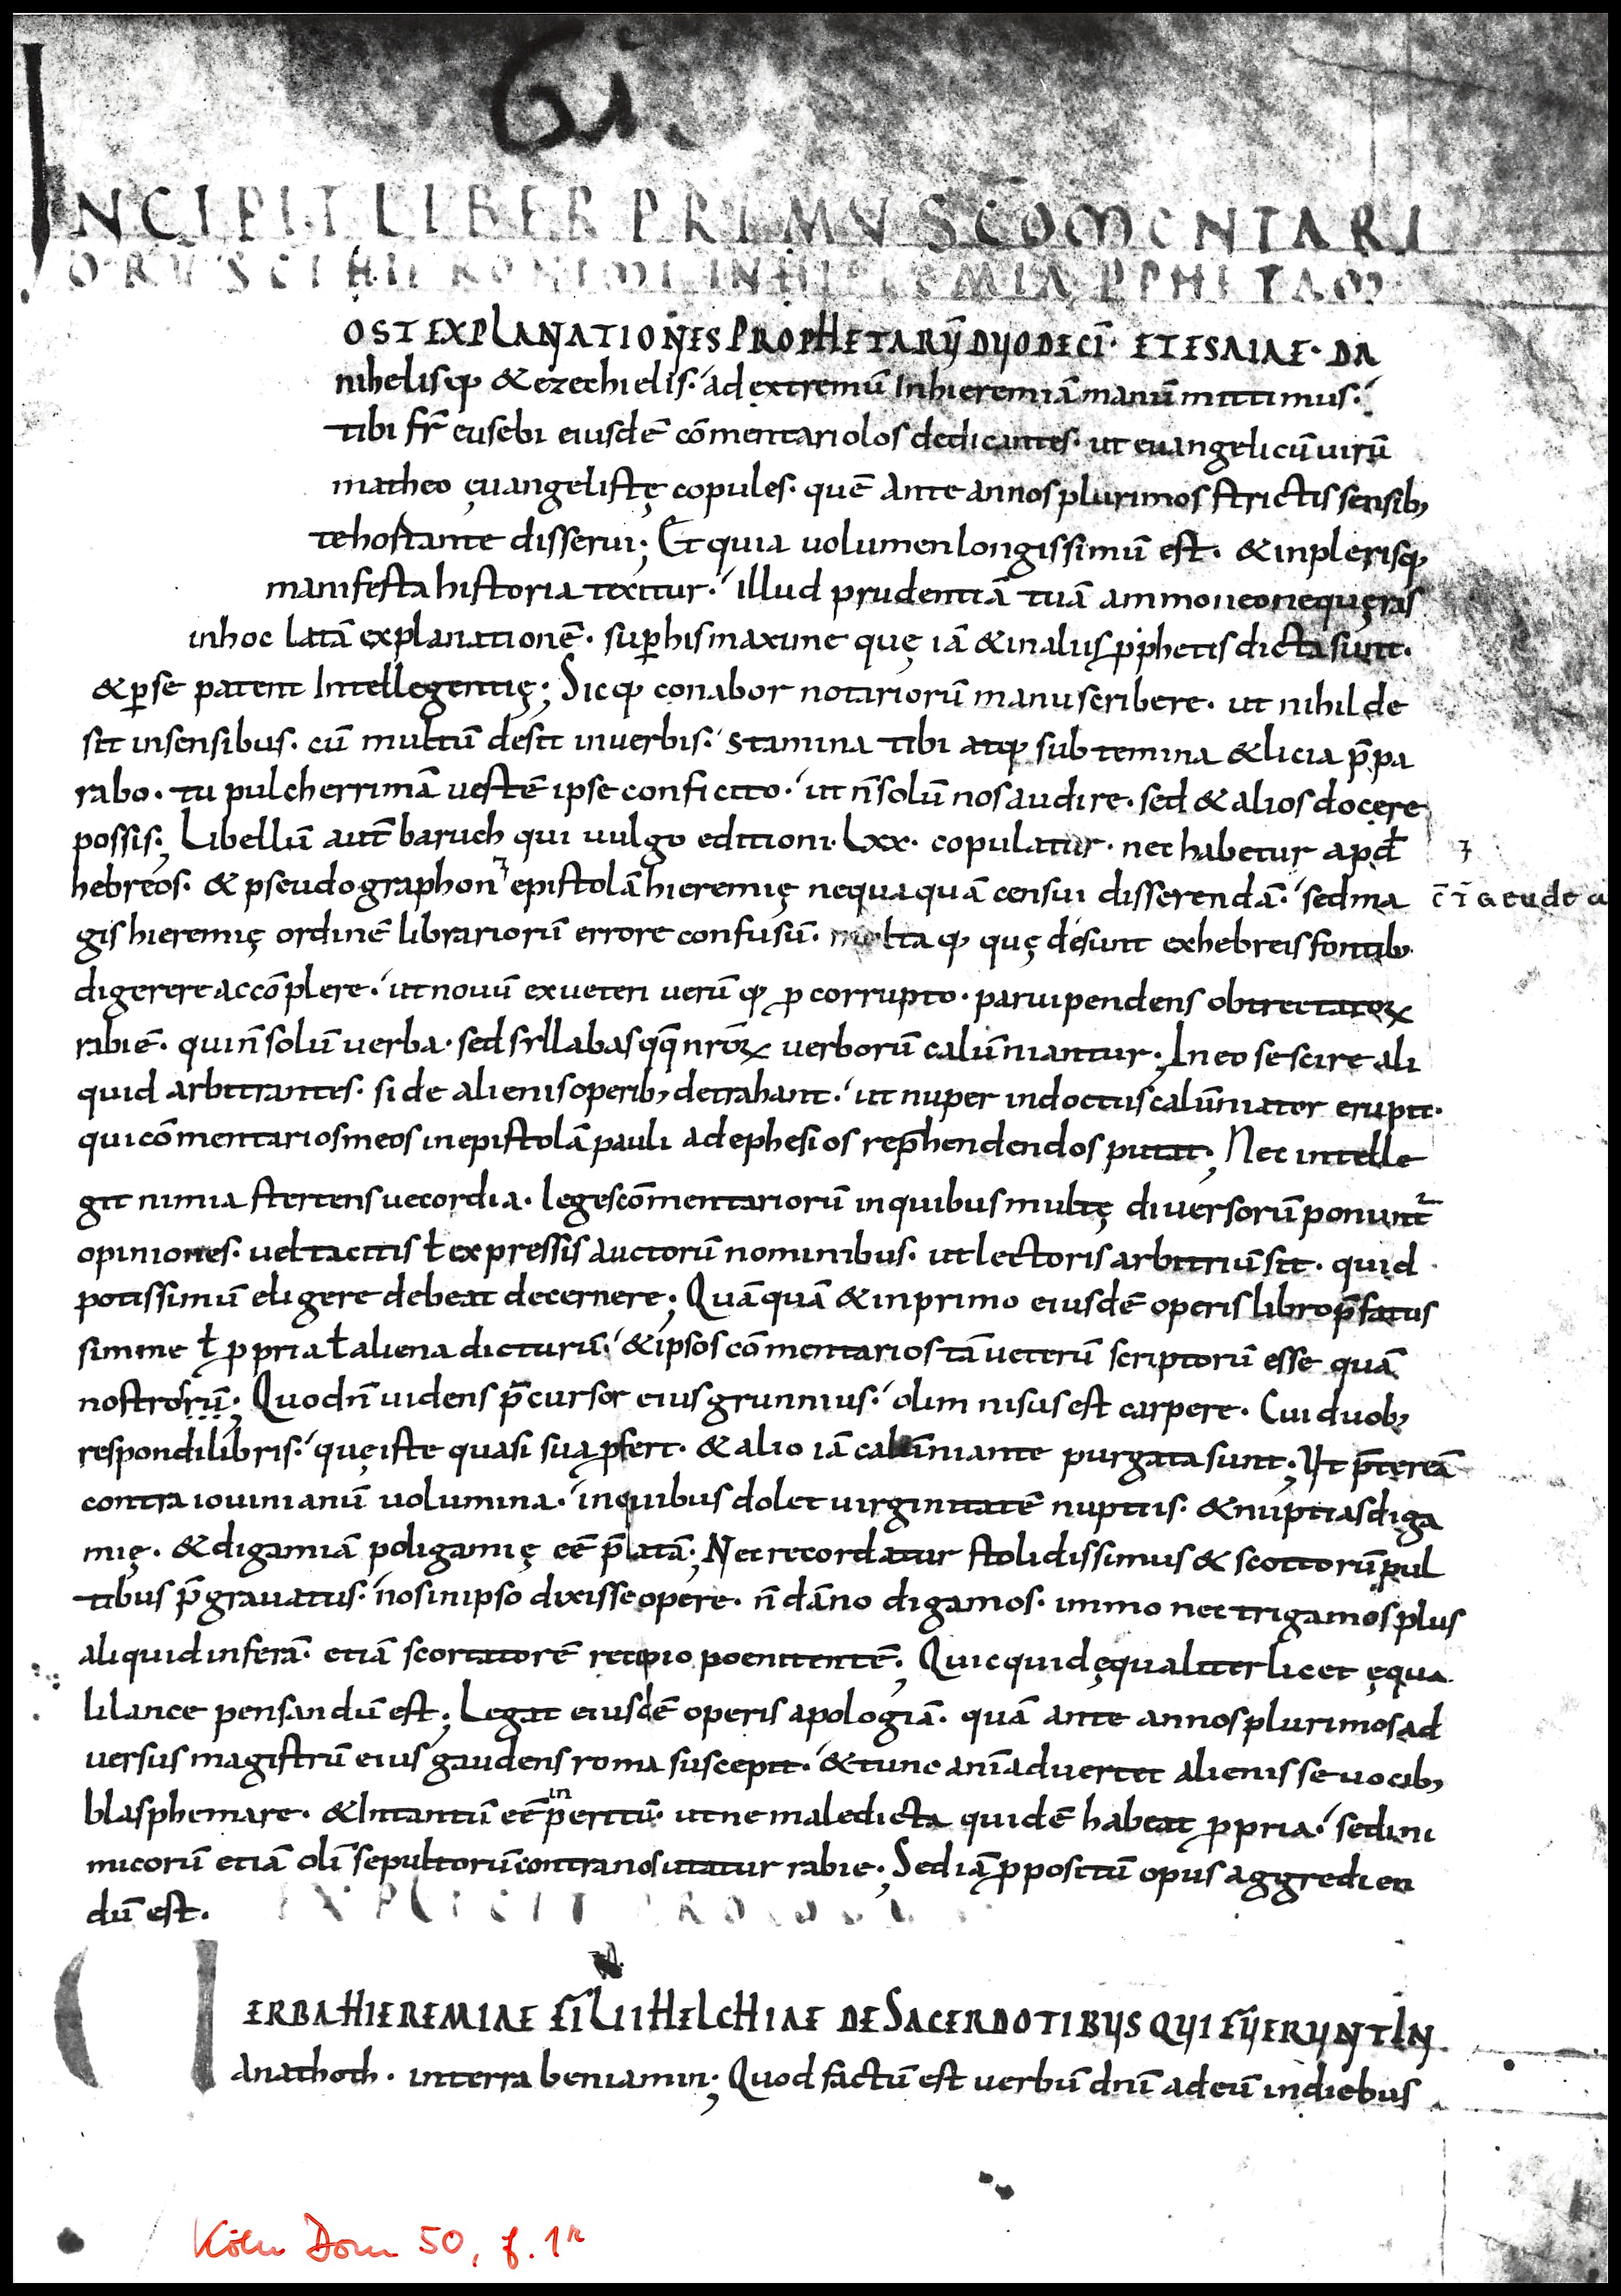 Gi.
INCIPIT LIBER PRIMUS COMENTARI
ORŪ SCI HIERONIMI IN HIEREMIA PPHETAM
OST EXPLANATIONES PROPHETARŪ DUODECĪ· ET ESAIAE· DA
nihelisq; & ezechielis·́ ad extremū In hieremiā manū mittimus·́
tibi fr̄ eusebi eiusdē cōmentariolos dedicantes· ut euangelicū uirū
matheo ęuangelistę copules· quē ante annos plurimos strictis sensib;
te hostante disserui; Et quia uolumen longissimū est· & in plerisq;
manifesta historia texitur·́ illud prudentiā tuā ammoneo ne quęras
in hoc latā explanationē· suꝑ his maxime quę iā & in aliis ꝓphetis dicta sunt·
& ꝑ se patent Intellegentię; Sicq; conabor notariorū manu scribere· ut nihil de
sit in sensibus· cū multū desit in uerbis·́ stamina tibi atq; subtemina & licia p̄pa
rabo· tu pulcherrimā uestē ipse conficito·́ ut n̄ solū nos audire· sed & alios docere
possis; Libellū aut̄ baruch qui uulgo editioni· Lxx· copulatur· nec habetur apđ
hebreos· & pseudographon ⁊ epistolā hieremię nequaquā censui disserendā·́ sed ma
⁊
gis hieremię ordinē librariorū errore confusū· multaq; quę desunt ex hebreis fontib·
digerere ac cōplere·́ ut nouū ex ueteri uerūq; ꝓ corrupto· paruipendens obtrectatoꝝ
rabiē· qui n̄ solū uerba· sed syllabas qq̄ nr̄oꝝ uerborū calūniantur; In eo se scire ali
quid arbitrantes· si de alienis operib; detrahant·́ ut nuper indoctus calūniator erupit·
qui cōmentarios meos in epistolā pauli ad ephesios rep̄hendendos putat; Nec intelle
git nimia stertens uecordia· leges cōmentariorū in quibus multę diuersorū ponunt̄
opiniones· uel tacitis ł expressis auctorū nominibus· ut lectoris arbitriū sit· quid
potissimū eligere debeat decernere; Quāquā & in primo eiusdē operis libro p̄fatus
sim me ł ꝓpria ł aliena dicturū·́ & ipsos cōmentarios tā ueterū scriptorū esse quā
nostrorū; Quod n̄ uidens p̄cursor eius grunnius·́ olim nisus est carpere· Cui duob;
respondi libris·́ quę iste quasi sua ꝓfert· & alio iā calūniante purgata sunt; Ut p̄tereā
contra iouinianū uolumina·́ in quibus dolet uirginitatē nuptiis· & nuptias diga
mię· & digamiā poligamię eē p̄latā; Nec recordatur stolidissimus & scottorū pul
tibus p̄grauatus·́ nos in ipso dixisse opere· n̄ dāno digamos· immo nec trigamos plus
aliquid inferā· etiā scortatorē recipio poenitentē; Quicquid ęqualiter licet ęqua
li lance pensandū est; Legat eiusdē operis apologiā· quā ante annos plurimos ad
uersus magistrū eius gaudens roma suscepit·́ & tunc anīaduertet alienis se uocib;
in
blasphemare· & Intantū eē ꝑeritū· ut ne maledicta quidē habeat ꝓpria·́ sed ini
micorū etiā olī sepultorū contra nos utatur rabie; Sed iā ꝓpositū opus aggredien
dū est· EXPLICIT PROLOGUS
ERBA HIEREMIAE FILII HELCHIAE DE SACERDOTIBUS QUI FUERUNT IN
anathoth· in terra beniamin; Quod factū est uerbū dn̄i ad eū in diebus
Köln Dom 50, f. 1r